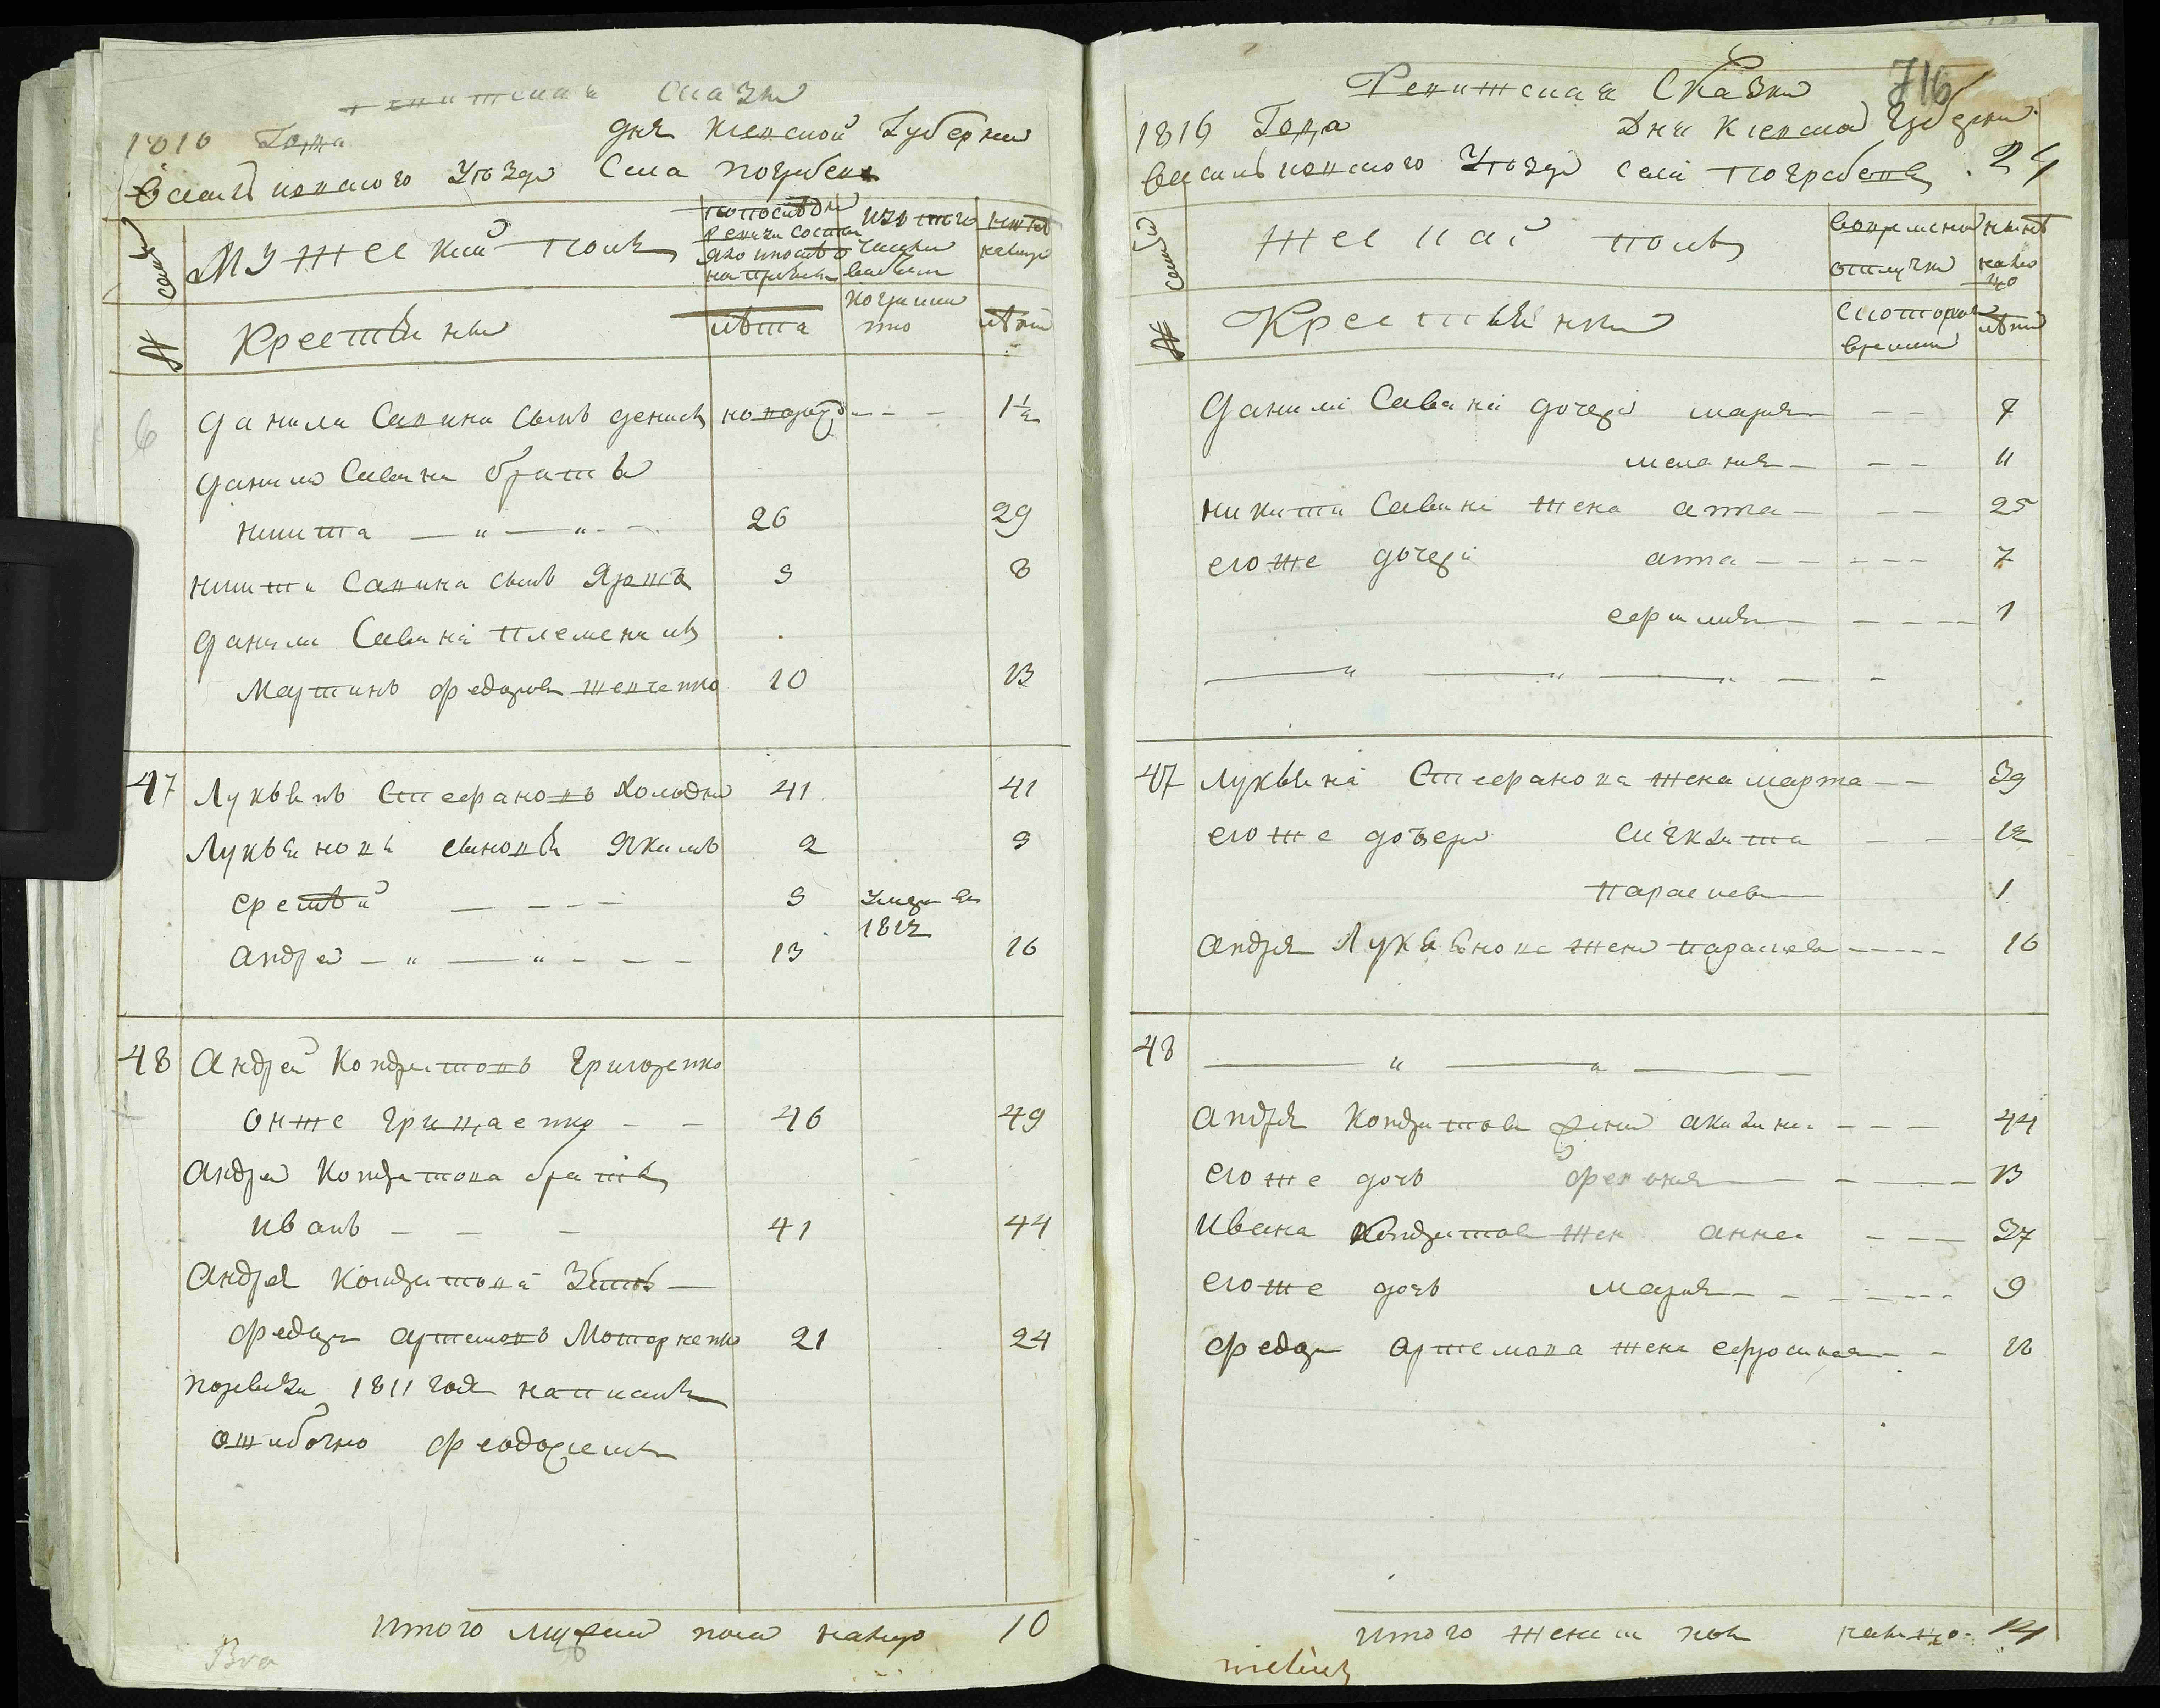 Ревижская Сказка
1816 Года дня Киевской Губернии
Васильковского Уезда Села Погребовъ
семьи
Мужеский Полъ
по последней ревизии состояло и после оной прибыло
изъ того числа выбыло
ныне на лицо
№
Крестьяне
лета
когда именно
лета
Данила Савина сынъ Денисъ новорожд - - 1½
Данила Савина братъ
Никита — " — " - - 26 29
Никиты Савина сынъ 5 8
Данила Савина племенникъ
Мартинъ Федоровъ Шевченко 10 13
47 Лукьянъ Стефановъ Холодны 41 41
Лукьянова сыновья Якимъ 2 5
Ерстей — - - - 9 умер въ 1812
Андрей - " — " - - - 13 16
48 Андрей Кондратовъ Григоренко
онже Грищенко - - 46 49
Андрея Кондратова братъ
Иванъ - - - 41 44
Андрея Кондратова Зять —
Федоръ Артемовъ Моторненко 21 24
Поревизи 1811 года написанъ
ошибочно Феодосиемъ
Итого мужска пола налицо 10
716
Ревижская Сказка
1816 Года Дня Киевской Губернии
Васильковского Уезда села Погребовъ 24
семьи
Женский полъ
во временной отлучке
ныне на лицо
№
Крестьянки
с которого времени
лета
Данила Савина дочери Марья - - 7
Мелания - - - 11
Никиты Савина жена Анна - - - 25
егоже дочери Анна - - - - - 7
1
— " — " — " - -
47 Лукьяна Стефанова жена Марта - - 39
егоже дочери - - 12
Параскева 1
Андрея Лукьянова жена Параскева - - - - 16
48 — " — " —
Андрея Кондратова жена Акилина - - - 44
егоже дочь Феврония — - — 13
Ивана Кондратова жен Анна - - - 37
егоже дочь Марья - - - - - - 9
Федора Артемова жена Ефросиния - - 18
Итого женска пола налицо 14